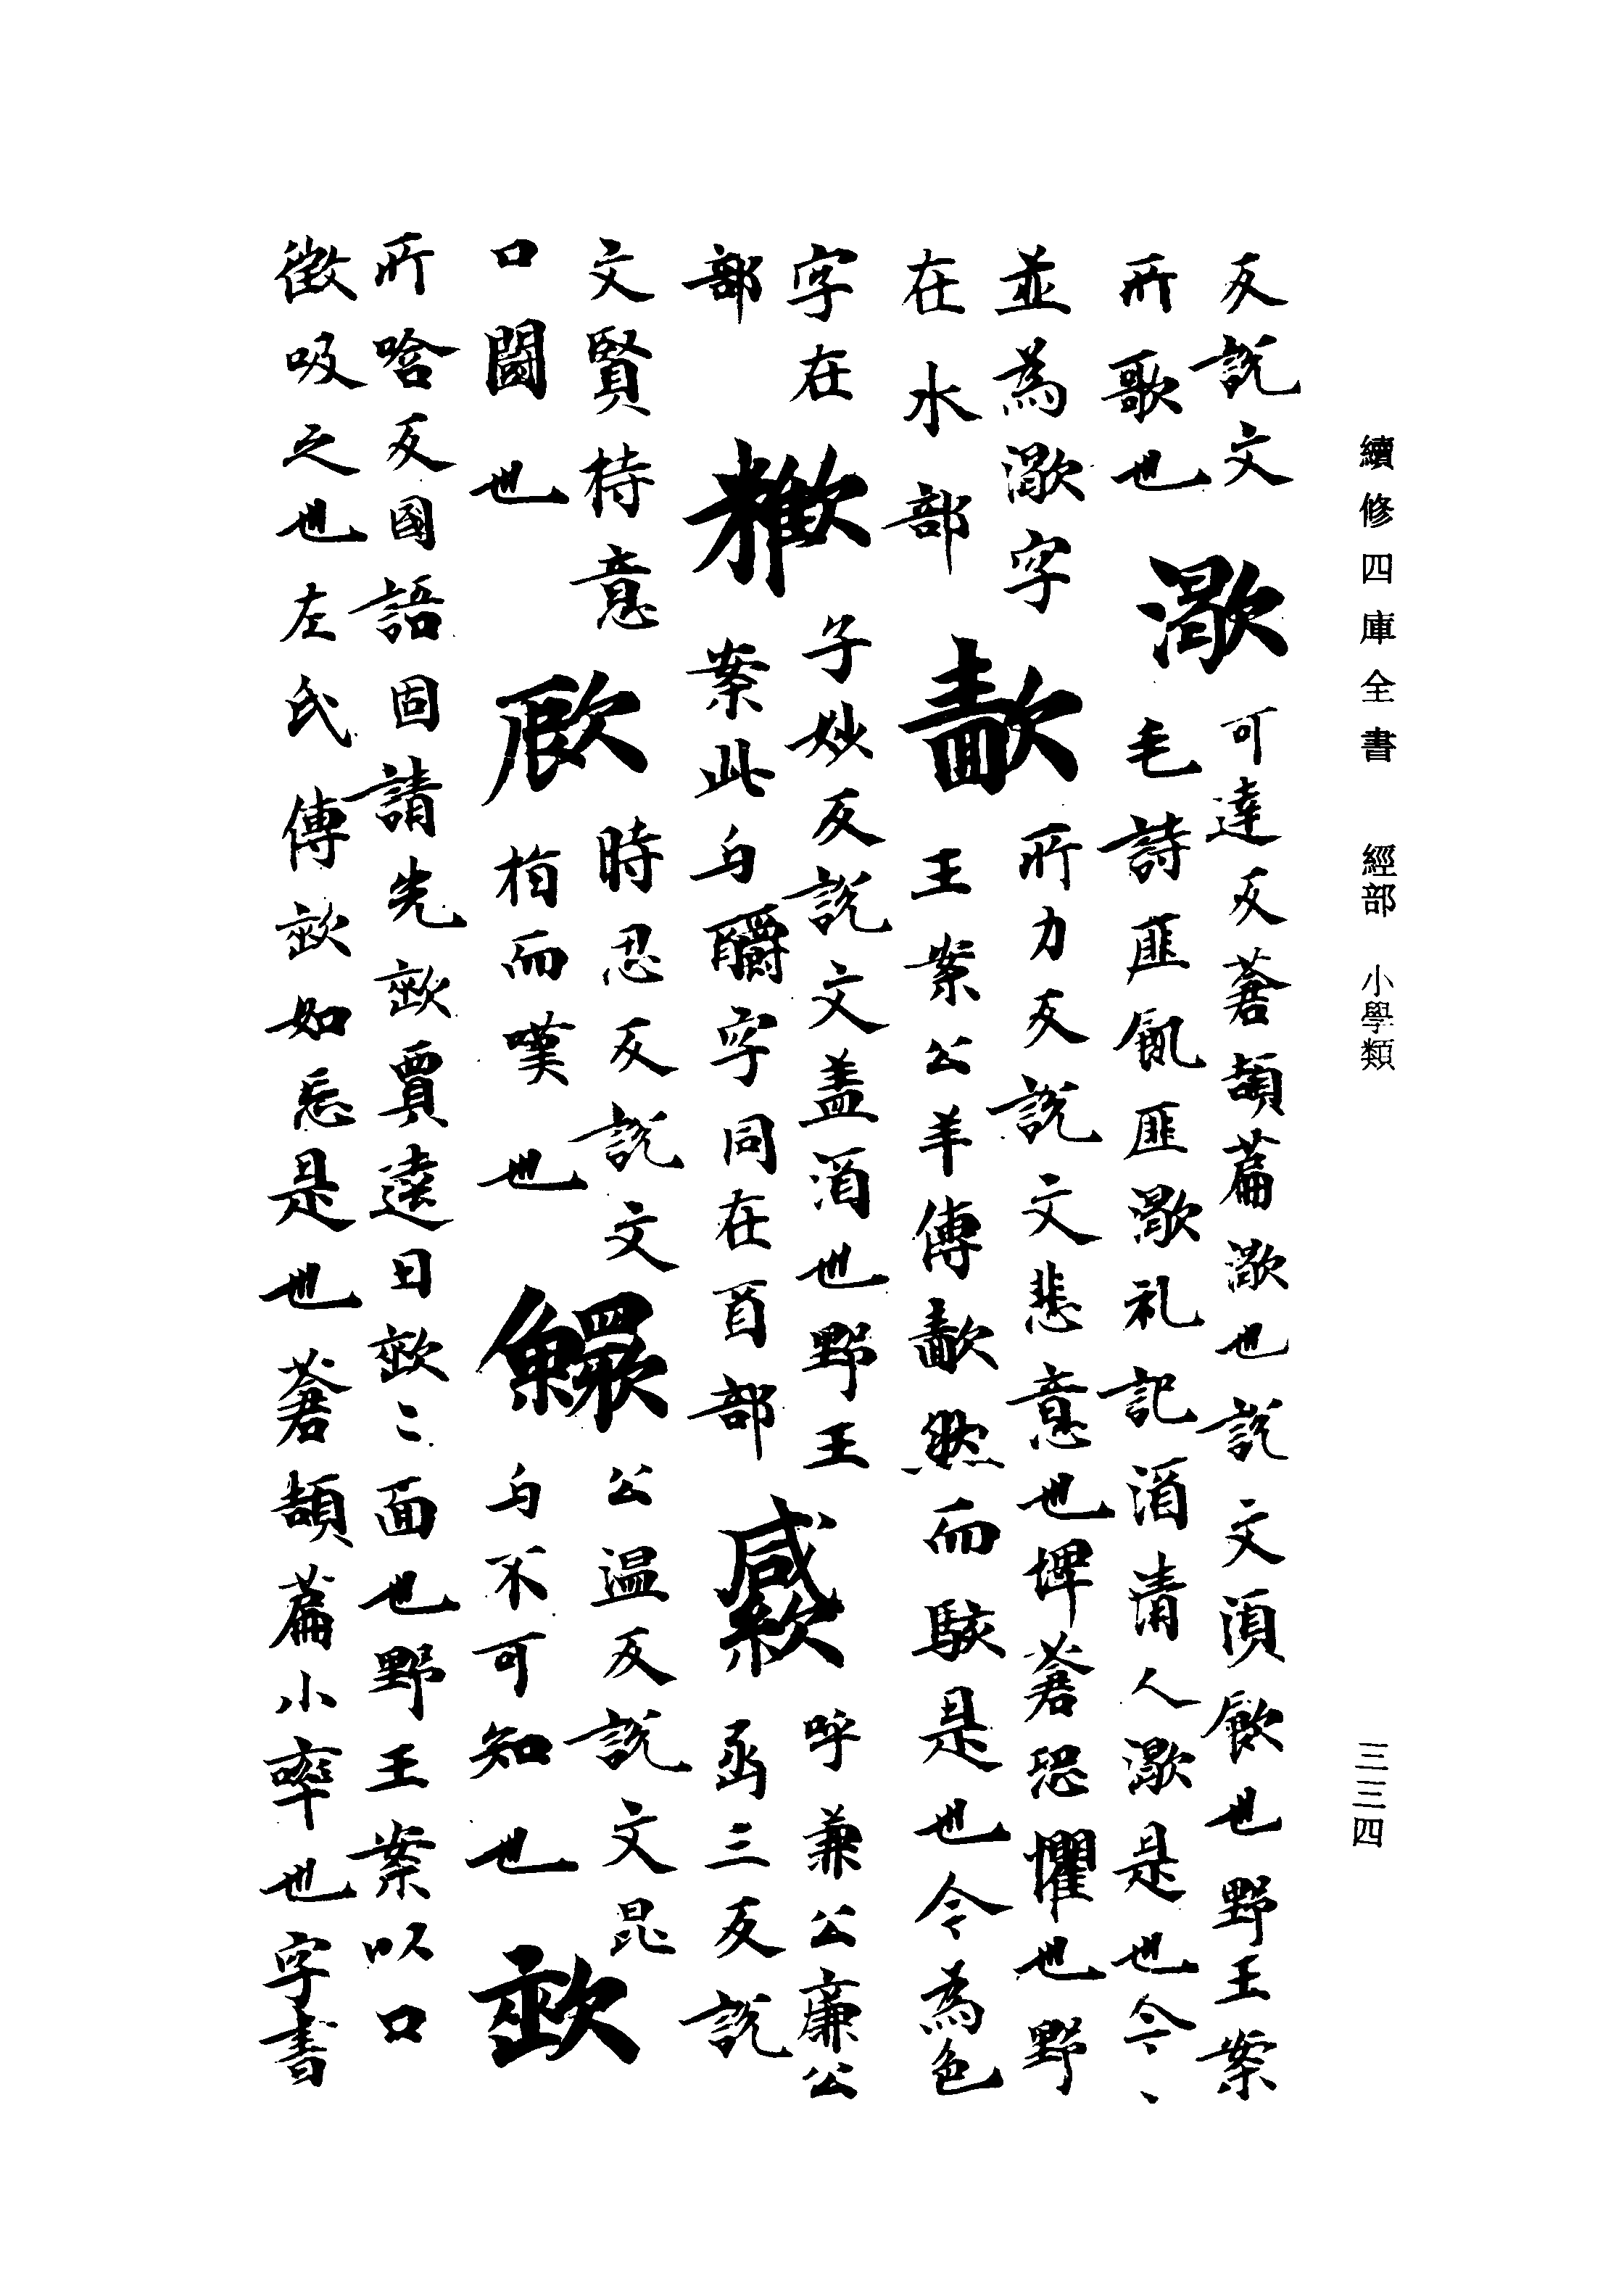 續修四庫全書 經部 小學類
三三四
反說文
所歌也
㵣
可達反蒼頡篇㵣也說文湏飲也野王案
毛詩匪飢匪㵣礼記酒清人㵣是也今〻
並為㵣字
在水部
㱇
所力反說文悲意也埤蒼恐懼也野
王案公羊傳㱇然而駭是也今為色
字在
部
子妙反說文盖酒也野王
案此与釂字同在酉部
呼兼公廉公
函三反說
文賢持意
口也
時忍反說文
指而嘆也
公温反說文昆
与不可知也
歃
所唅反國語固請先歃賈逵曰歃〻面也野王案以口
徵吸之也左氏傳歃如忘是也蒼頡篇小啐也字書